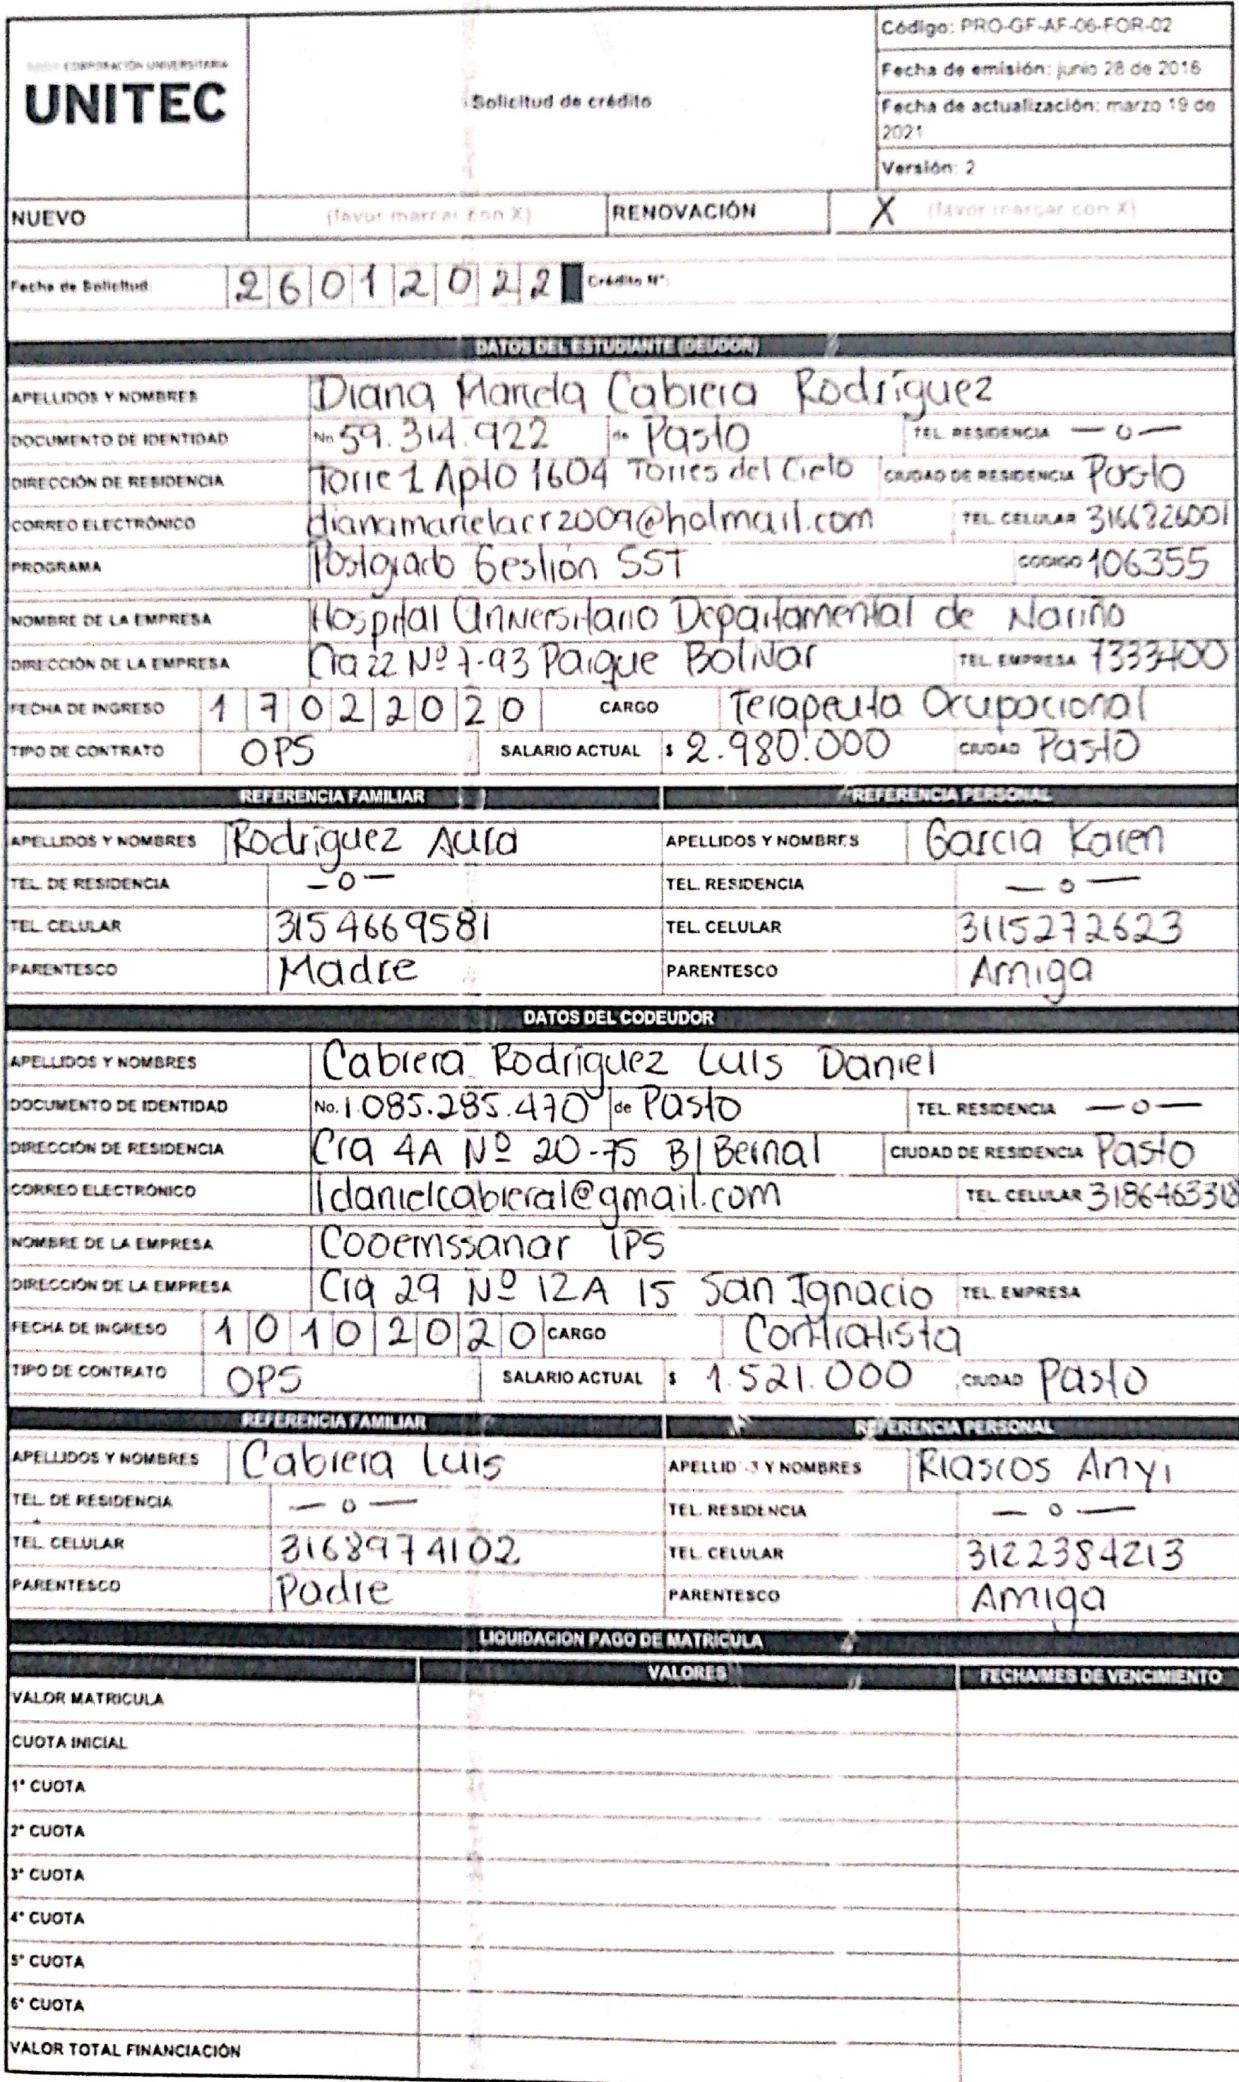 Código: PRO-GF-AF-06-FOR-02
CORPORACIÓN UNIVERSITARIA
UNITEC
Solicitud de crédito
Fecha de emisión: junio 28 de 2016
Fecha de actualización: marzo 19 de 2021
Versión: 2
NUEVO (favor marcar con X) RENOVACIÓN X (favor marcar con X)
Fecha de Solicitud: 26012022 Crédito N°:
DATOS DEL ESTUDIANTE (DEUDOR)
APELLIDOS Y NOMBRES Diana Marcela Cabrera Rodríguez
DOCUMENTO DE IDENTIDAD No 59.314.922 de Pasto TEL. RESIDENCIA —o—
DIRECCIÓN DE RESIDENCIA Torre 1 Apto 1604 Torres del Cielo CIUDAD DE RESIDENCIA Pasto
CORREO ELECTRÓNICO dianamarielacr2009@hotmail.com TEL. CELULAR 3166826001
PROGRAMA Postgrado Gestión SST CODIGO 106355
NOMBRE DE LA EMPRESA Hospital Universitario Departamental de Nariño
DIRECCIÓN DE LA EMPRESA Cra 22 Nº 7-93 Parque Bolívar TEL. EMPRESA 7333400
FECHA DE INGRESO 17022020 CARGO Terapeuta Ocupacional
TIPO DE CONTRATO OPS SALARIO ACTUAL $ 2.980.000 CIUDAD Pasto
REFERENCIA FAMILIAR REFERENCIA PERSONAL
APELLIDOS Y NOMBRES Rodríguez Aura APELLIDOS Y NOMBRES García Karen
TEL. DE RESIDENCIA —o— TEL. RESIDENCIA —o—
TEL. CELULAR 3154669581 TEL. CELULAR 3115272623
PARENTESCO Madre PARENTESCO Amiga
DATOS DEL CODEUDOR
APELLIDOS Y NOMBRES Cabrera Rodríguez Luis Daniel
DOCUMENTO DE IDENTIDAD No. 1.085.285.470 de Pasto TEL. RESIDENCIA —o—
DIRECCIÓN DE RESIDENCIA Cra 4A Nº 20-75 B/Bernal CIUDAD DE RESIDENCIA Pasto
CORREO ELECTRÓNICO ldanielcabrera1@gmail.com TEL. CELULAR 3186463318
NOMBRE DE LA EMPRESA Cooemssanar IPS
DIRECCIÓN DE LA EMPRESA Cra 29 Nº 12A 15 San Ignacio TEL. EMPRESA
FECHA DE INGRESO 10102020 CARGO Contratista
TIPO DE CONTRATO OPS SALARIO ACTUAL $ 1.521.000 CIUDAD Pasto
REFERENCIA FAMILIAR REFERENCIA PERSONAL
APELLIDOS Y NOMBRES Cabrera Luis APELLIDOS Y NOMBRES Riascos Anyi
TEL. DE RESIDENCIA —o— TEL. RESIDENCIA —o—
TEL. CELULAR 3168974102 TEL. CELULAR 3122384213
PARENTESCO Padre PARENTESCO Amiga
LIQUIDACION PAGO DE MATRICULA
VALORES FECHA/MES DE VENCIMIENTO
VALOR MATRICULA
CUOTA INICIAL
1° CUOTA
2° CUOTA
3° CUOTA
4° CUOTA
5° CUOTA
6° CUOTA
VALOR TOTAL FINANCIACIÓN